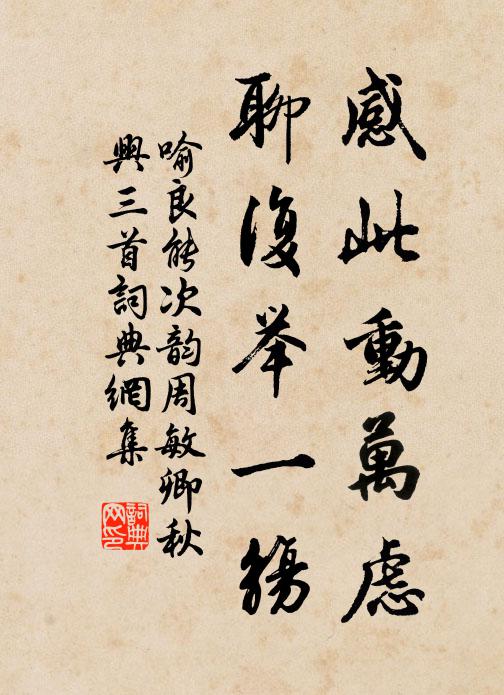 感此動萬慮
聊復举一觞
喻良能次韵周敏卿秋
興三首詞典網集
詞典
网印